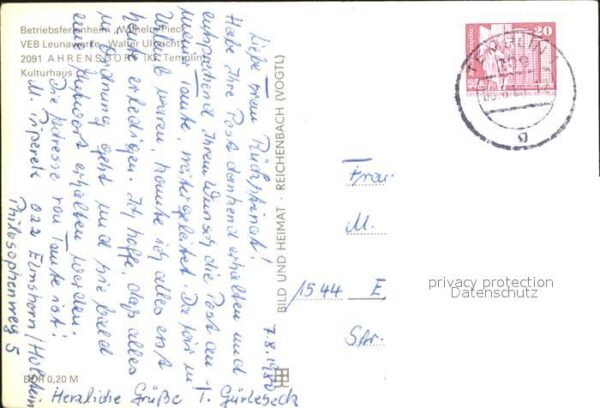 Betriebsferienheim „Wilhelm Pieck"
VEB Leunawerke „Walter Ulbricht"
2091 AHRENSDORF (Kr. Templin)
Kulturhaus
BILD UND HEIMAT · REICHENBACH (VOGTL)
DDR 0,20 M
7.8.1980
Liebe Frau
Habe Ihre Post dankend erhalten und
entsprechend Ihrem Wunsch die Post an
meine Tante weitergeleitet. Da wir in
Urlaub waren, konnte ich alles erst
heute erledigen. Ich hoffe, daß alles
in Ordnung geht und Sie bald
eine Antwort erhalten werden.
Die Adresse von Tante ist:
M. Piperek 022 Elmshorn/Holstein
Philosophenweg 5
Herzliche Grüße I. Gürlebeck
Frau
M.
1544 E
Str.
20
TEMPLIN 1
209
privacy protection
Datenschutz